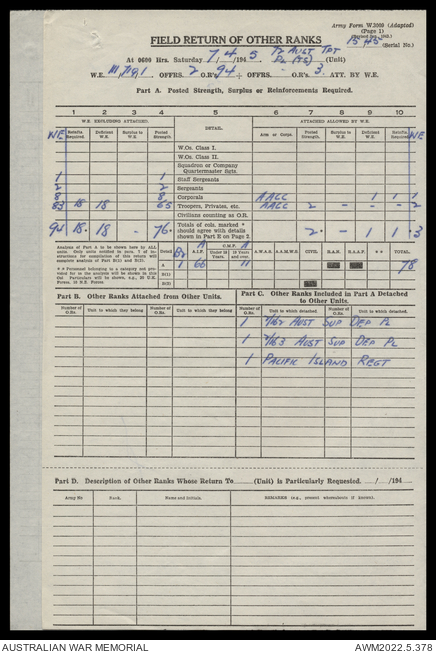 Army Form W.3009 (Adapted)
(Page 1)
FIELD RETURN OF OTHER RANKS
15 45 (Serial No.)
At 0600 Hrs. Saturday 7 / 4 /194 5. 72 AUST TPT PL (TS) (Unit)
W.E. OFFRS. 2 O.R's. 94 ÷ OFFRS. - O.R's. 3. ATT. BY W.E.
Part A. Posted Strength, Surplus or Reinforcements Required.
1 2 3 4 5 6 7 8 9 10
W.E. EXCLUDING ATTACHED. DETAIL. ATTACHED ALLOWED BY W.E.
WE Reinfts. Required. Deficient W.E. Surplus to W.E. Posted Strength. Arm or Corps. Posted Strength. Surplus to W.E. Deficient W.E. Reinfts. Required. WE
W.Os. Class I.
W.Os. Class II.
Squadron or Company Quartermaster Sgts.
1 1 Staff Sergeants
2 2 Sergeants
8 8 Corporals AACC 1 1 1
83 18 18 65 Troopers, Privates, etc. AACC 2 - - - 2
Civilians counting as O.R.
94 18. 18 - 76. Totals of cols. marked * should agree with details shown in Part E on Page 2. 2. - 1 1 . 3
Analysis of Part A to be shown here by ALL units.
Detail A A.I.F. C.M.F. A Under 19 Years. 19 Years and over. A.W.A.S. A.A.M.W.S. CIVIL R.A.N. R.A.A.F. * * TOTAL
A 1 66 11 78
2(ii)
2(i)
Part B. Other Ranks Attached from Other Units.
Part C. Other Ranks Included in Part A Detached to Other Units.
Number of O.Rs. Unit to which they belong Number of O.Rs. Unit to which they belong Number of O.Rs. Unit to which detached. Number of O.Rs. Unit to which detached.
1 2/162 AUST SUP DEP PL
1 2/163 AUST SUP DEP PL
1 PACIFIC ISLAND REGT
Part D. Description of Other Ranks Whose Return To (Unit) is Particularly Requested. / /194
Army No Rank. Name and Initials. REMARKS (e.g., present whereabouts if known).
AUSTRALIAN WAR MEMORIAL AWM2022.5.378